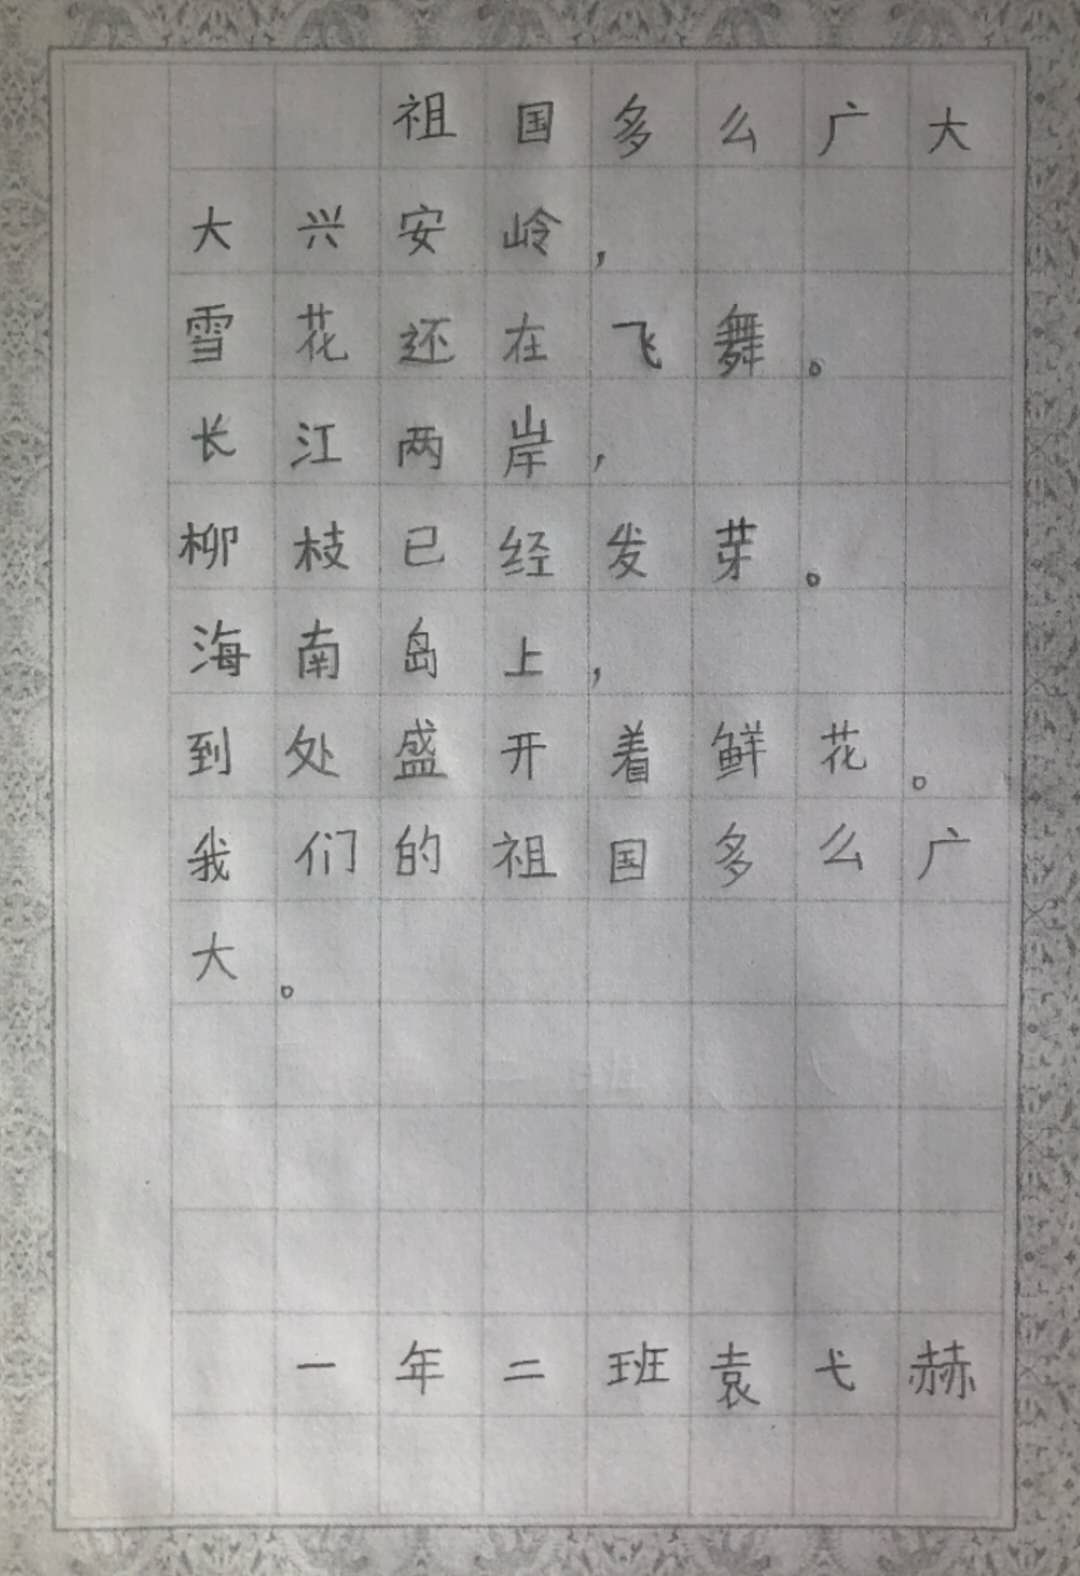 祖国多么广大
大兴安岭，
雪花还在飞舞。
长江两岸，
柳枝已经发芽。
海南岛上，
到处盛开着鲜花。
我们的祖国多么广
大。
一年二班袁弋赫